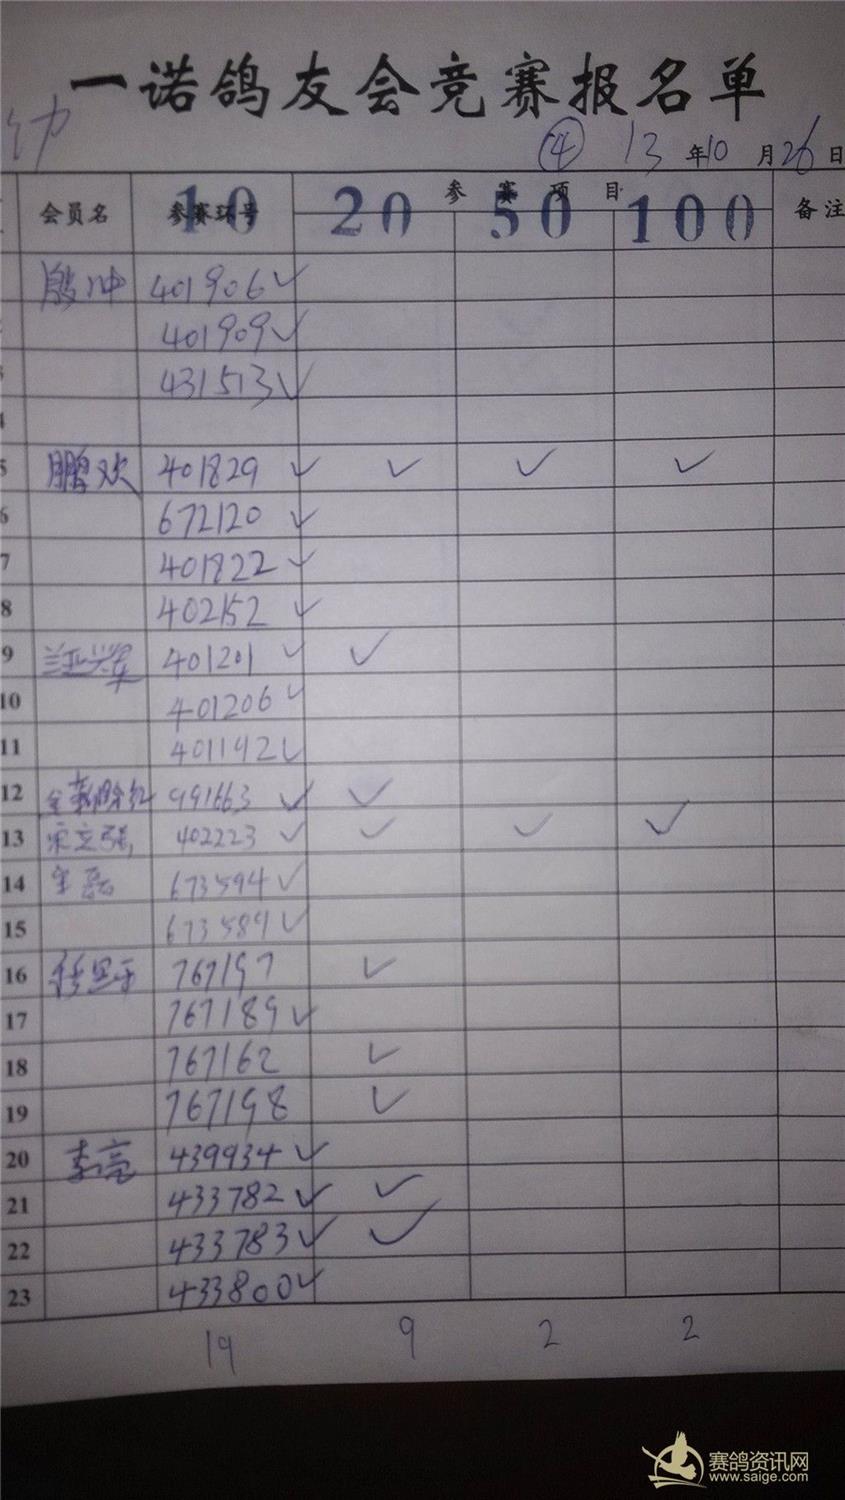 一诺鸽友会竞赛报名单
幼
④ 13 年 10 月 26 日
会员名 参赛环号 10 参赛项目 20 50 100 备注
401906 ✓
401909 ✓
431513 ✓
5 鹏欢 401829 ✓ ✓ ✓ ✓
6 672120 ✓
7 401822 ✓
8 402152 ✓
9 401201 ✓ ✓
10 401206 ✓
11 401192 ✓
12 991663 ✓ ✓
13 宋立强 402223 ✓ ✓ ✓ ✓
14 673594 ✓
15 673589 ✓
16 767197 ✓
17 767189 ✓
18 767162 ✓
19 767198 ✓
20 李亮 439934 ✓
21 433782 ✓ ✓
22 433783 ✓ ✓
23 433800 ✓
19 9 2 2
赛鸽资讯网
www.saige.com